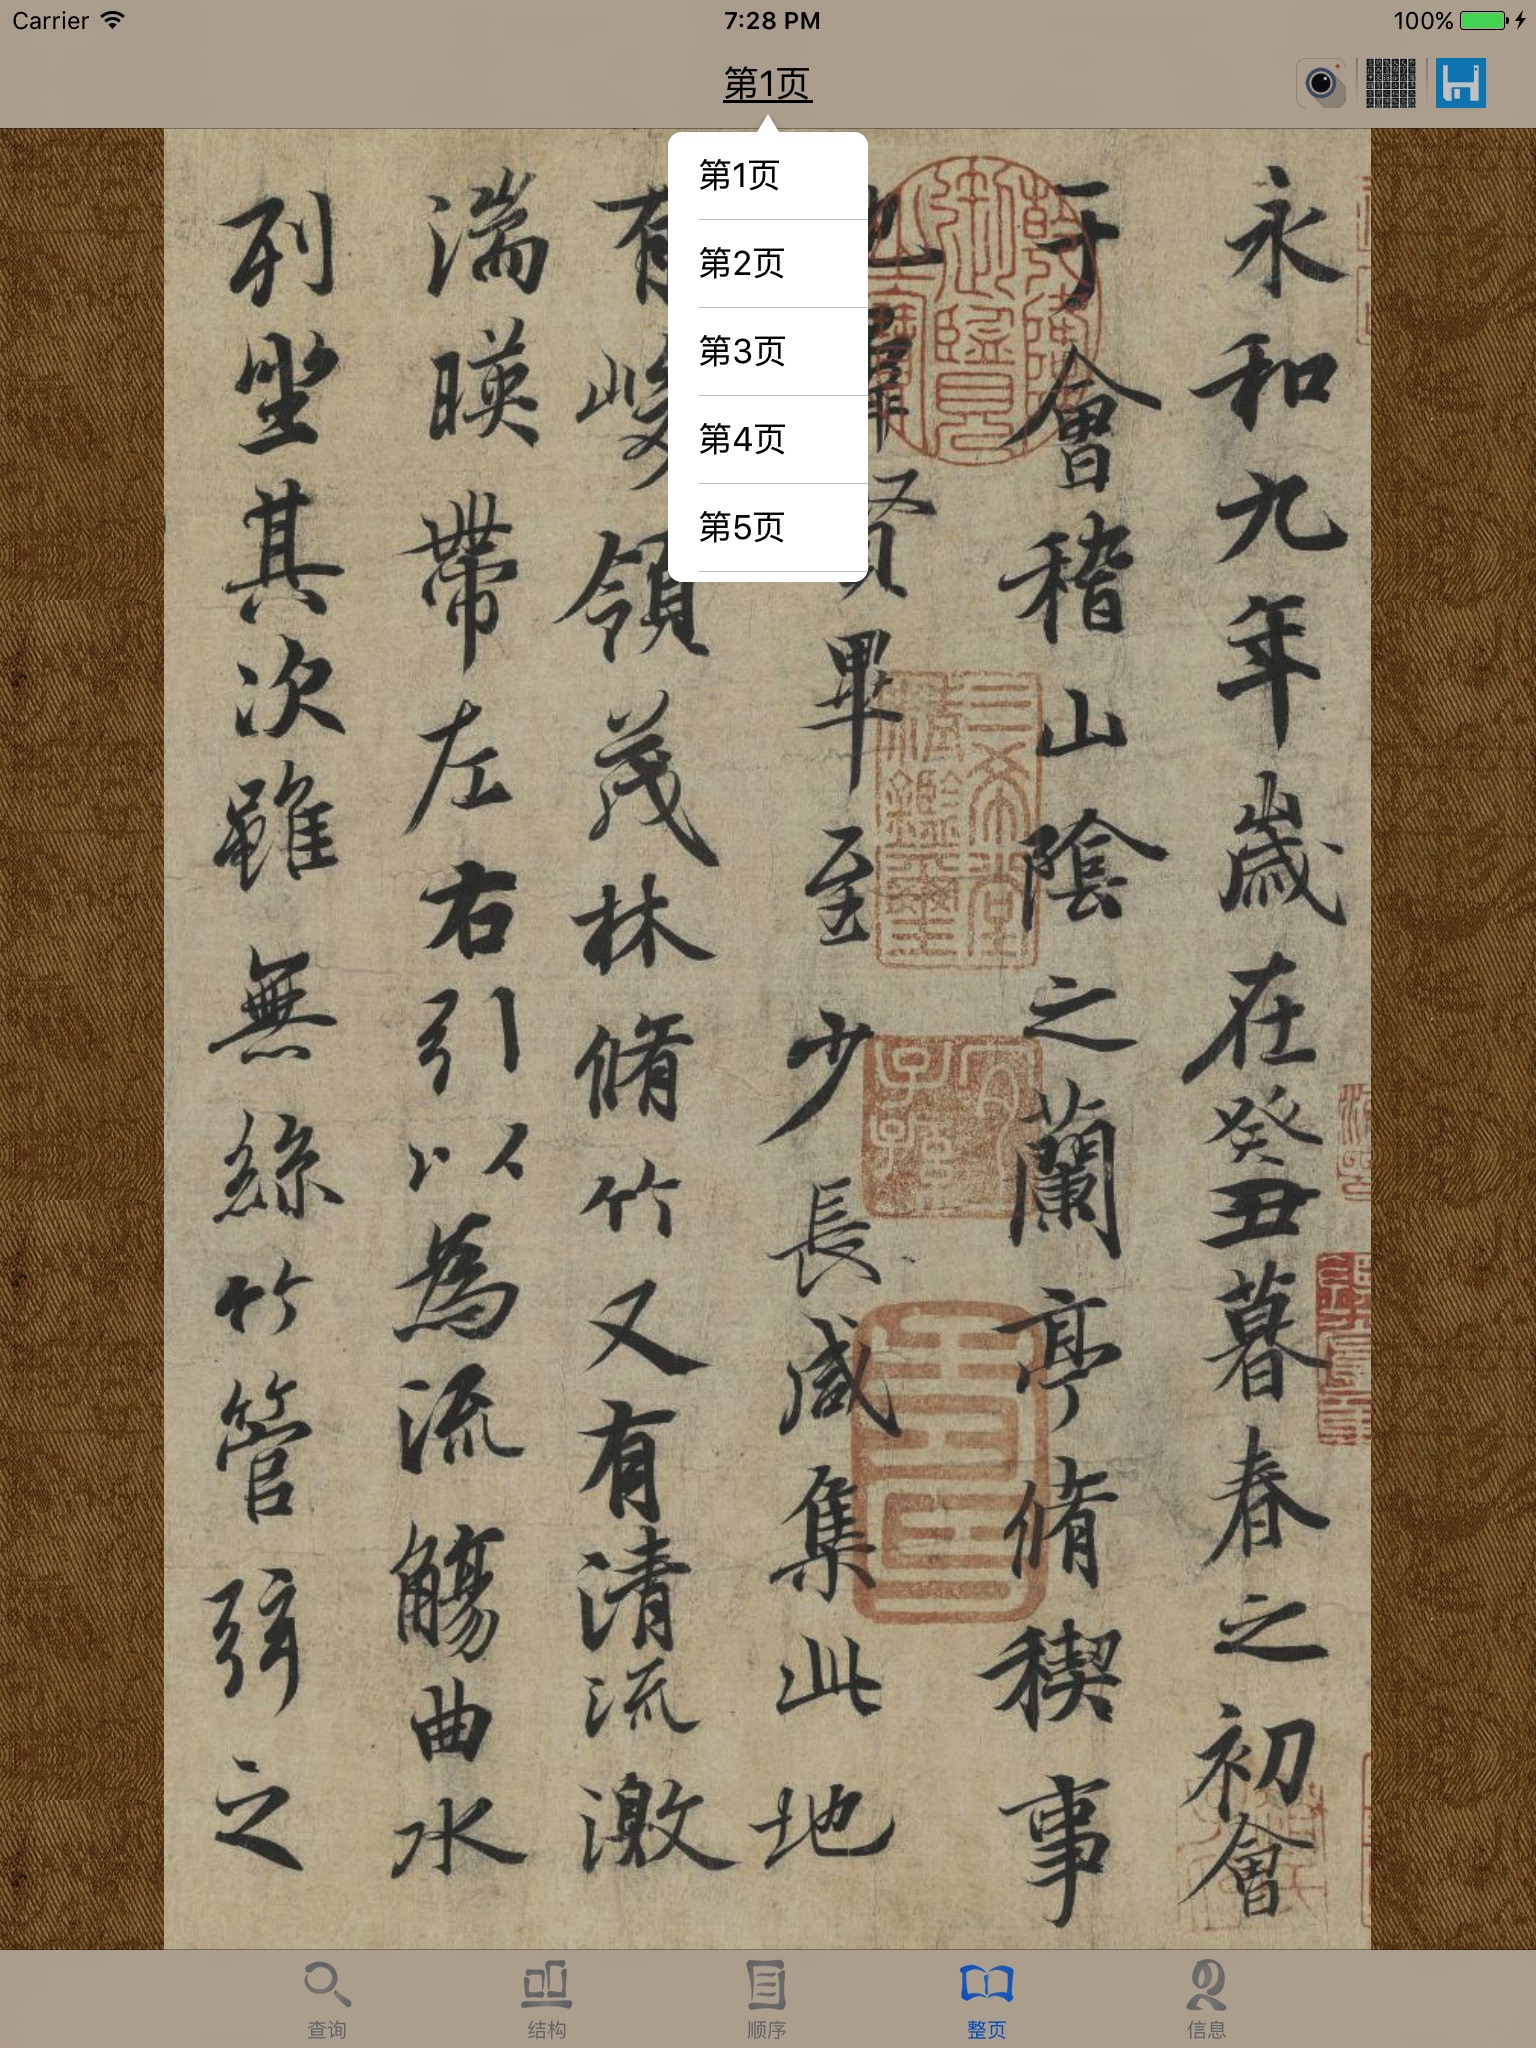 Carrier
7:28 PM
100%
第1页
第1页
第2页
第3页
第4页
第5页
永和九年歲在癸丑暮春之初會
于會稽山陰之蘭亭脩稧事
也羣賢畢至少長咸集此地
有峻領茂林脩竹又有清流激
湍暎帶左右引以為流觴曲水
列坐其次雖無絲竹管弦之
三希堂精鑑璽
宜子孫
查询
结构
顺序
整页
信息